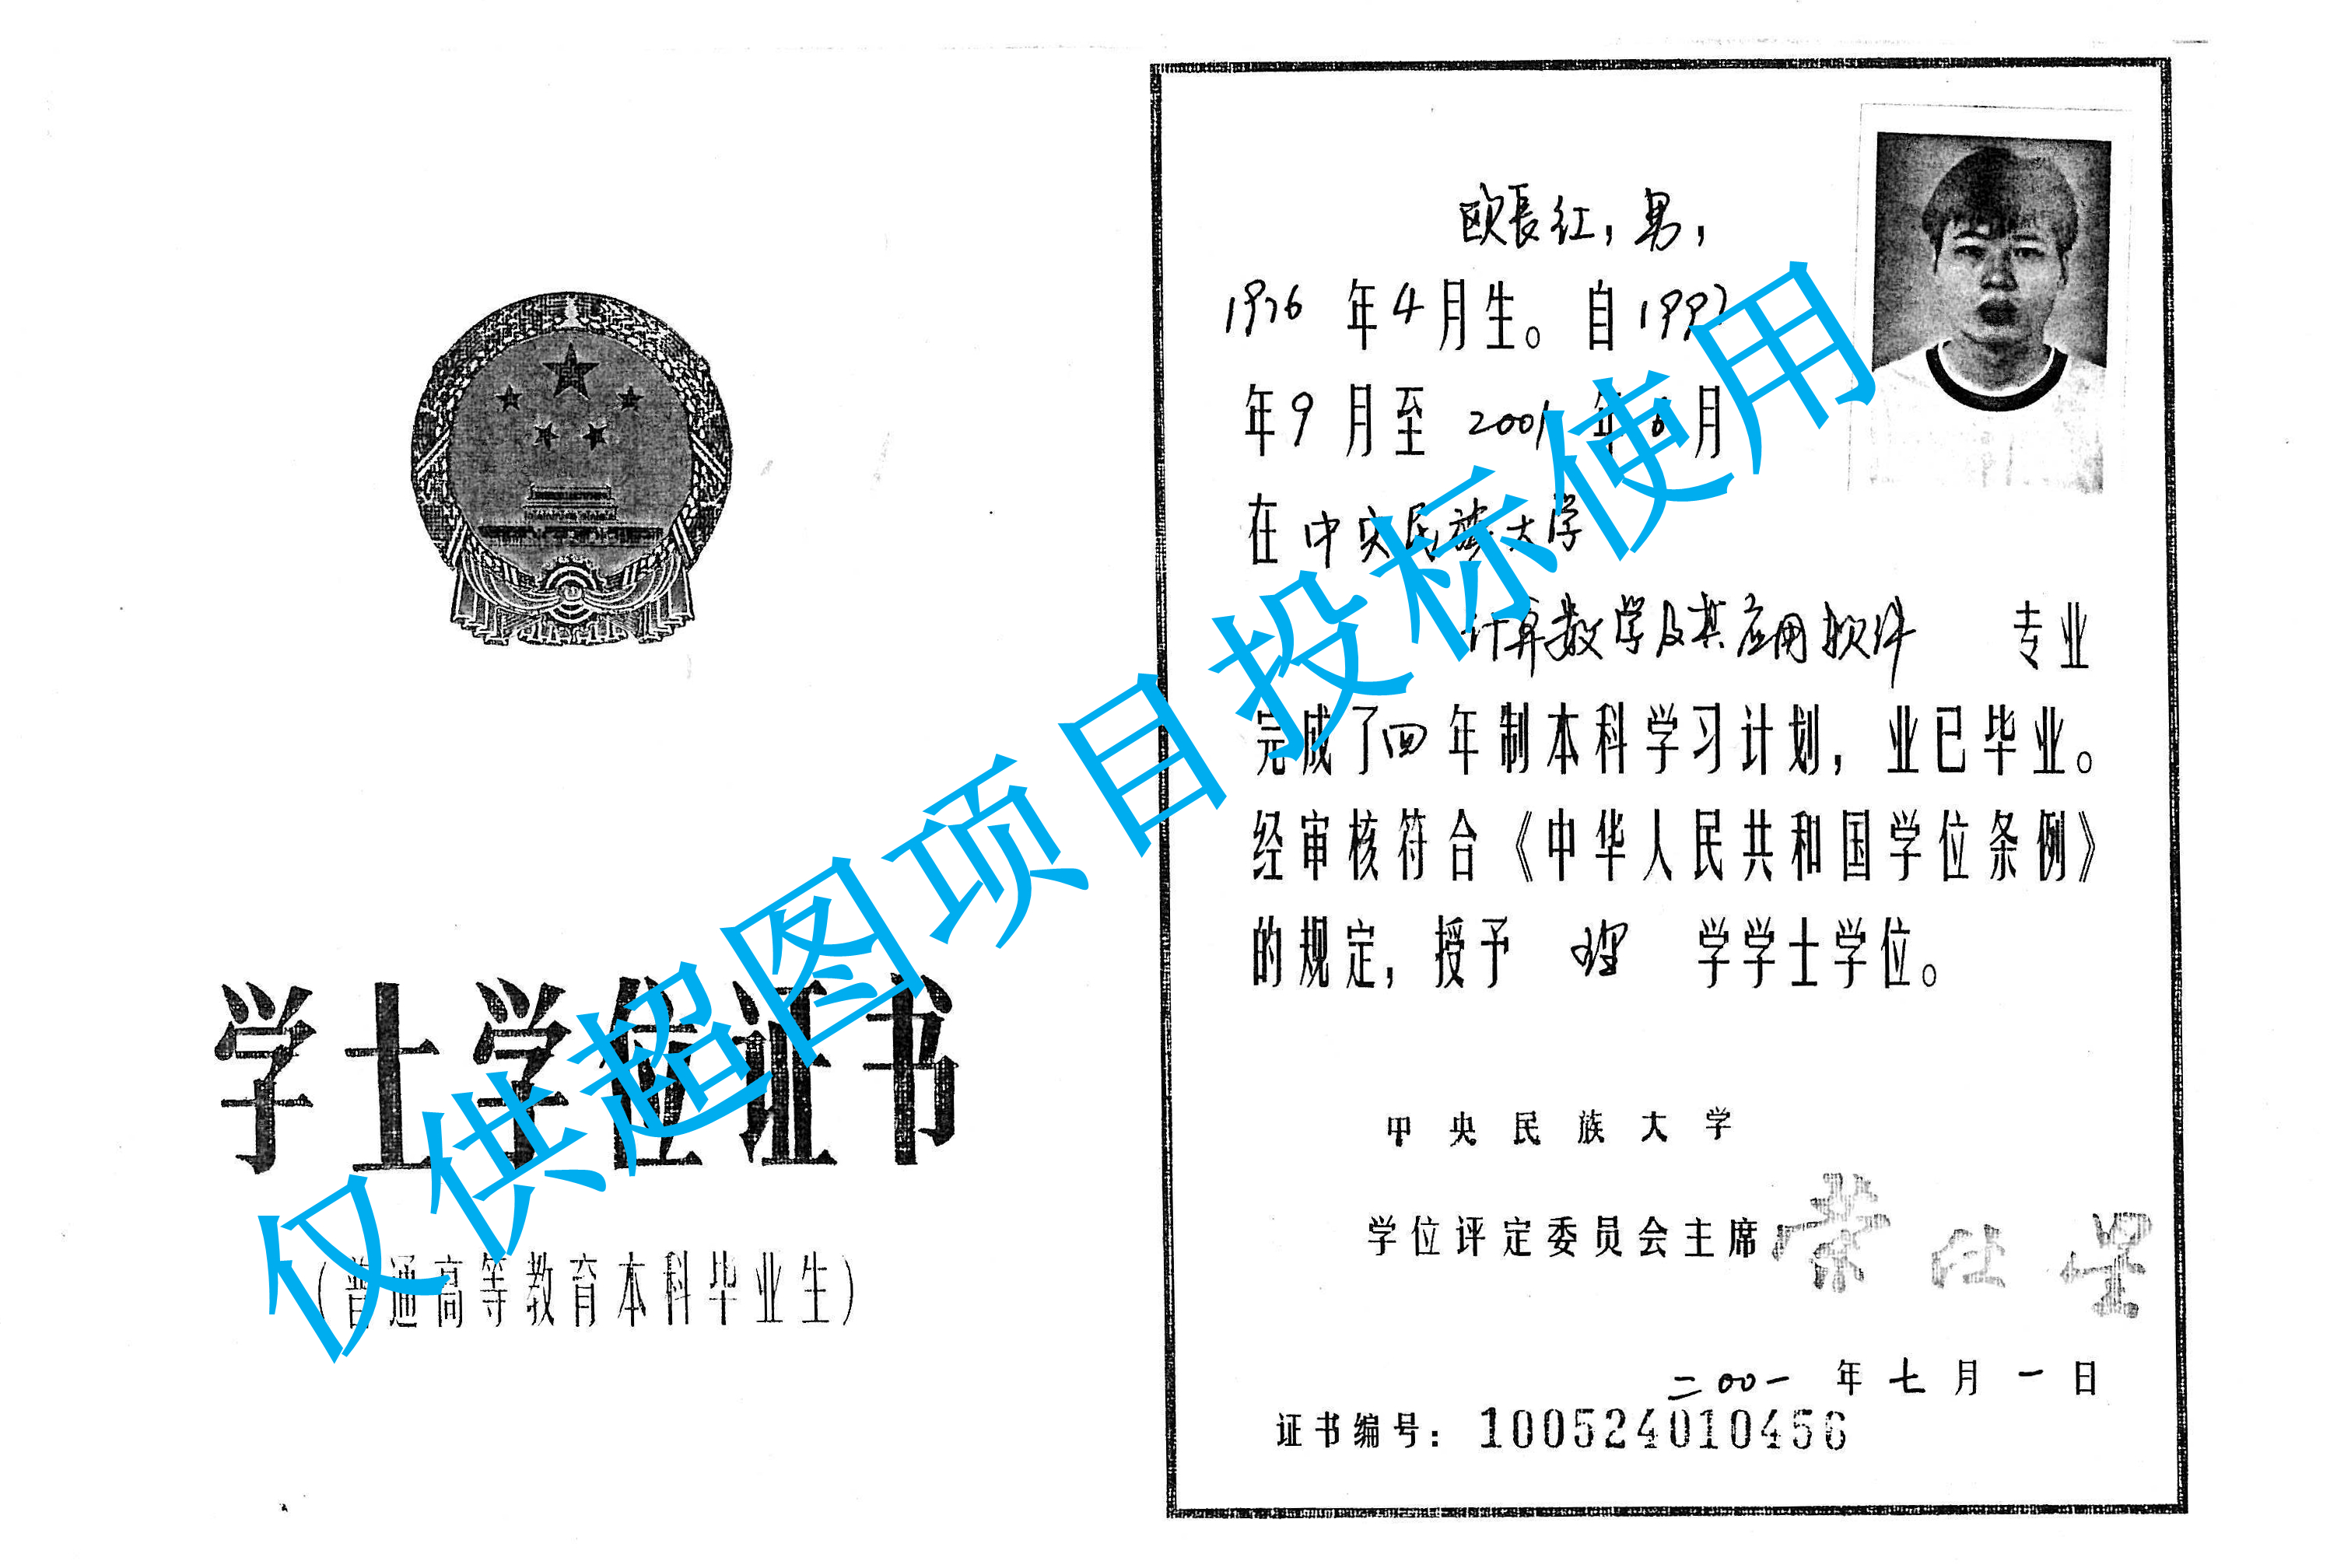 学士学位证书
(普通高等教育本科毕业生)
欧長红，男，
1976 年 4 月生。自 1997
年 9 月至 2001 年 6 月
在 中央民族大学
计算数学及其应用软件 专业
完成了四年制本科学习计划，业已毕业。
经审核符合《中华人民共和国学位条例》
的规定，授予 理 学学士学位。
中央民族大学
学位评定委员会主席 荣仕星
二〇〇一年七月一日
证书编号：100524010456
仅供超图项目投标使用